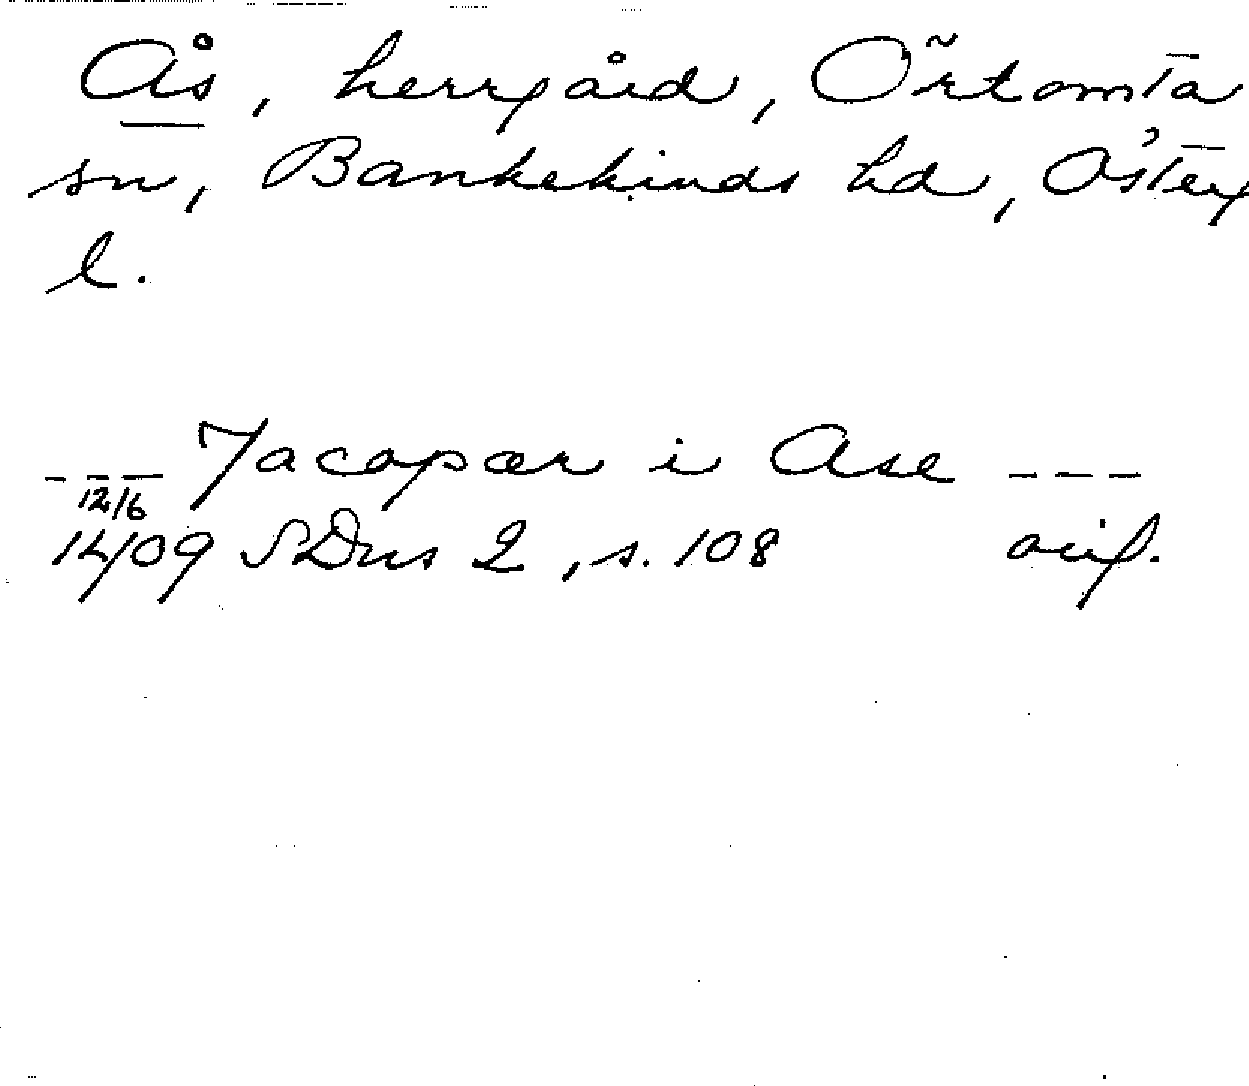 Ås, herrgård, Örtomta
sn, Bankekinds hd, Österg
l.
--- Jacopær i Ase ---
12/6
1409 SDns 2, s. 108 orig.